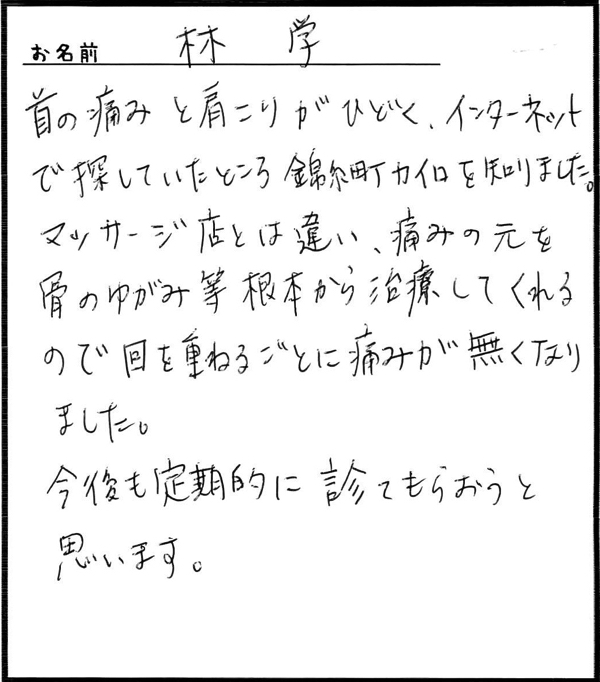 お名前 林 学
首の痛みと肩こりがひどく、インターネット
で探していたところ錦糸町カイロを知りました。
マッサージ店とは違い、痛みの元を
骨のゆがみ等根本から治療してくれる
ので回を重ねるごとに痛みが無くなり
ました。
今後も定期的に診てもらおうと
思います。